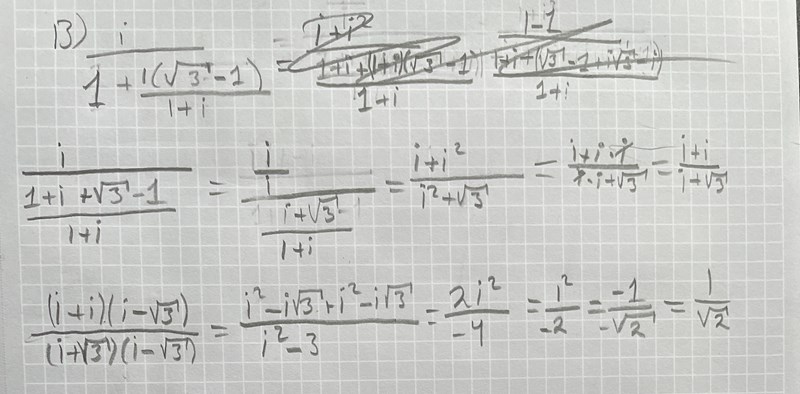 13) i / (1 + 1(√3 - 1) / (1+i)) = i+i² / ((1+i+(1+i)(√3-1)) / (1+i)) = i-1 / ((1+i+(√3-1+i√3-i)) / (1+i))
i / ((1+i+√3-1) / (1+i)) = (i / i) / ((i+√3) / (1+i)) = (i+i²) / (i²+√3) = (i+i·i) / (i·i+√3) = (i+i) / (i+√3)
(i+i)(i-√3) / (i+√3)(i-√3) = (i²-i√3+i²-i√3) / (i²-3) = 2i² / -4 = i² / -2 = -1 / -√2 = 1 / √2